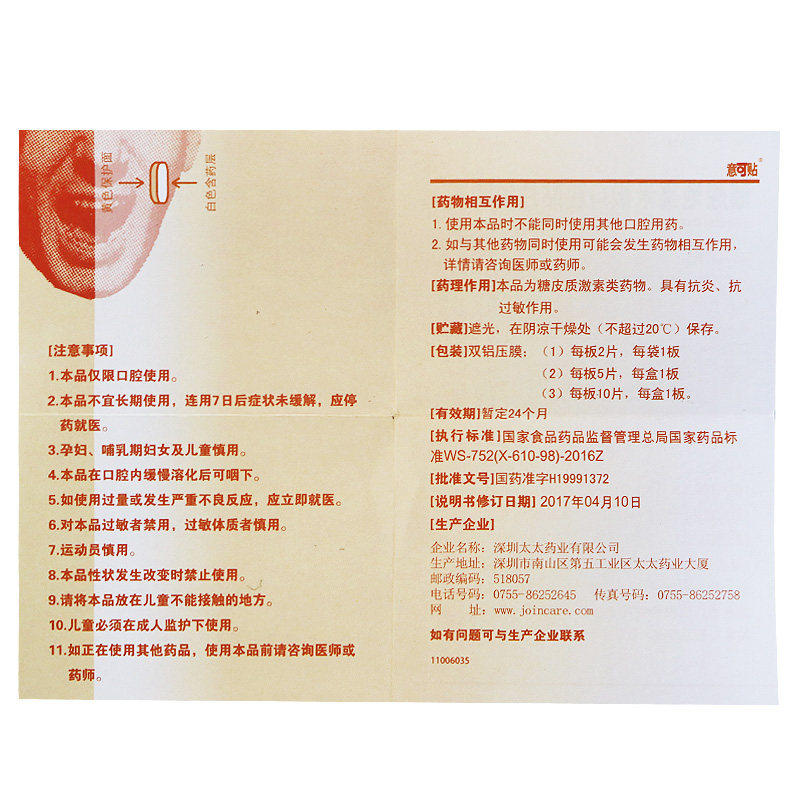 黄色保护面
白色含药层
[注意事项]
1.本品仅限口腔使用。
2.本品不宜长期使用，连用7日后症状未缓解，应停
药就医。
3.孕妇、哺乳期妇女及儿童慎用。
4.本品在口腔内缓慢溶化后可咽下。
5.如使用过量或发生严重不良反应，应立即就医。
6.对本品过敏者禁用，过敏体质者慎用。
7.运动员慎用。
8.本品性状发生改变时禁止使用。
9.请将本品放在儿童不能接触的地方。
10.儿童必须在成人监护下使用。
11.如正在使用其他药品，使用本品前请咨询医师或
药师。
意可贴®
[药物相互作用]
1. 使用本品时不能同时使用其他口腔用药。
2. 如与其他药物同时使用可能会发生药物相互作用，
详情请咨询医师或药师。
[药理作用]本品为糖皮质激素类药物。具有抗炎、抗
过敏作用。
[贮藏]遮光，在阴凉干燥处（不超过20℃）保存。
[包装]双铝压膜；（1）每板2片，每袋1板
（2）每板5片，每盒1板
（3）每板10片，每盒1板。
[有效期]暂定24个月
[执行标准]国家食品药品监督管理总局国家药品标
准WS-752(X-610-98)-2016Z
[批准文号]国药准字H19991372
[说明书修订日期] 2017年04月10日
[生产企业]
企业名称：深圳太太药业有限公司
生产地址：深圳市南山区第五工业区太太药业大厦
邮政编码：518057
电话号码：0755-86252645 传真号码：0755-86252758
网 址：www.joincare.com
如有问题可与生产企业联系
11006035